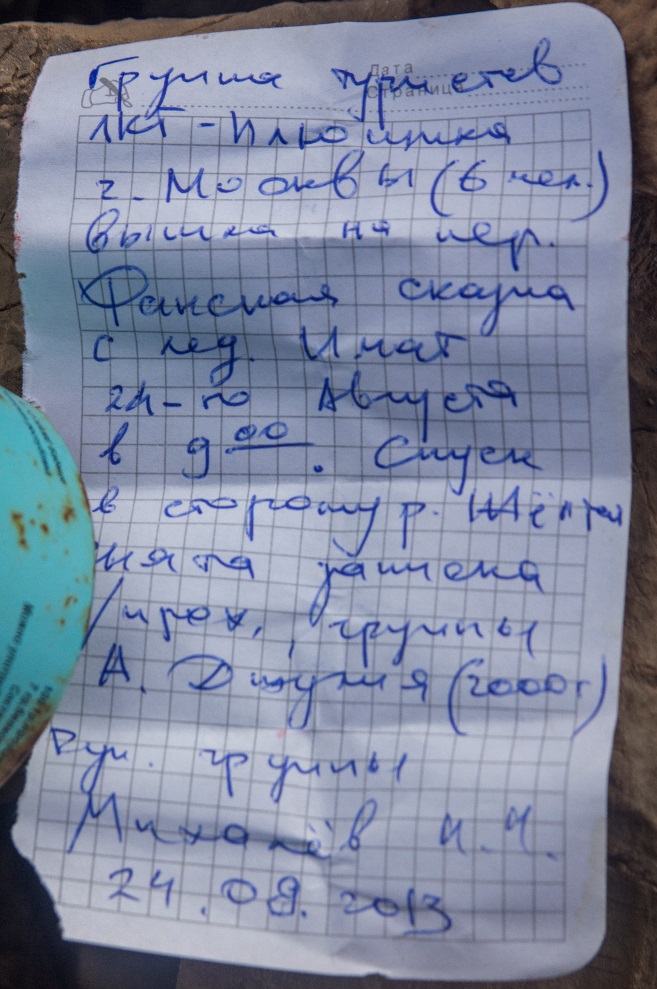 Дата
Страница
Группа туристов
ЛКТ - Илюшинка
г. Москвы (6 чел.)
вышла на пер.
Фанская сказка
с лед. Имат
24-го Августа
в 9 00. Спуск
в сторону р.
нята записка
группы
А. Джулия (2000г)
Рук. группы
Михалёв И.И.
24.08.2013